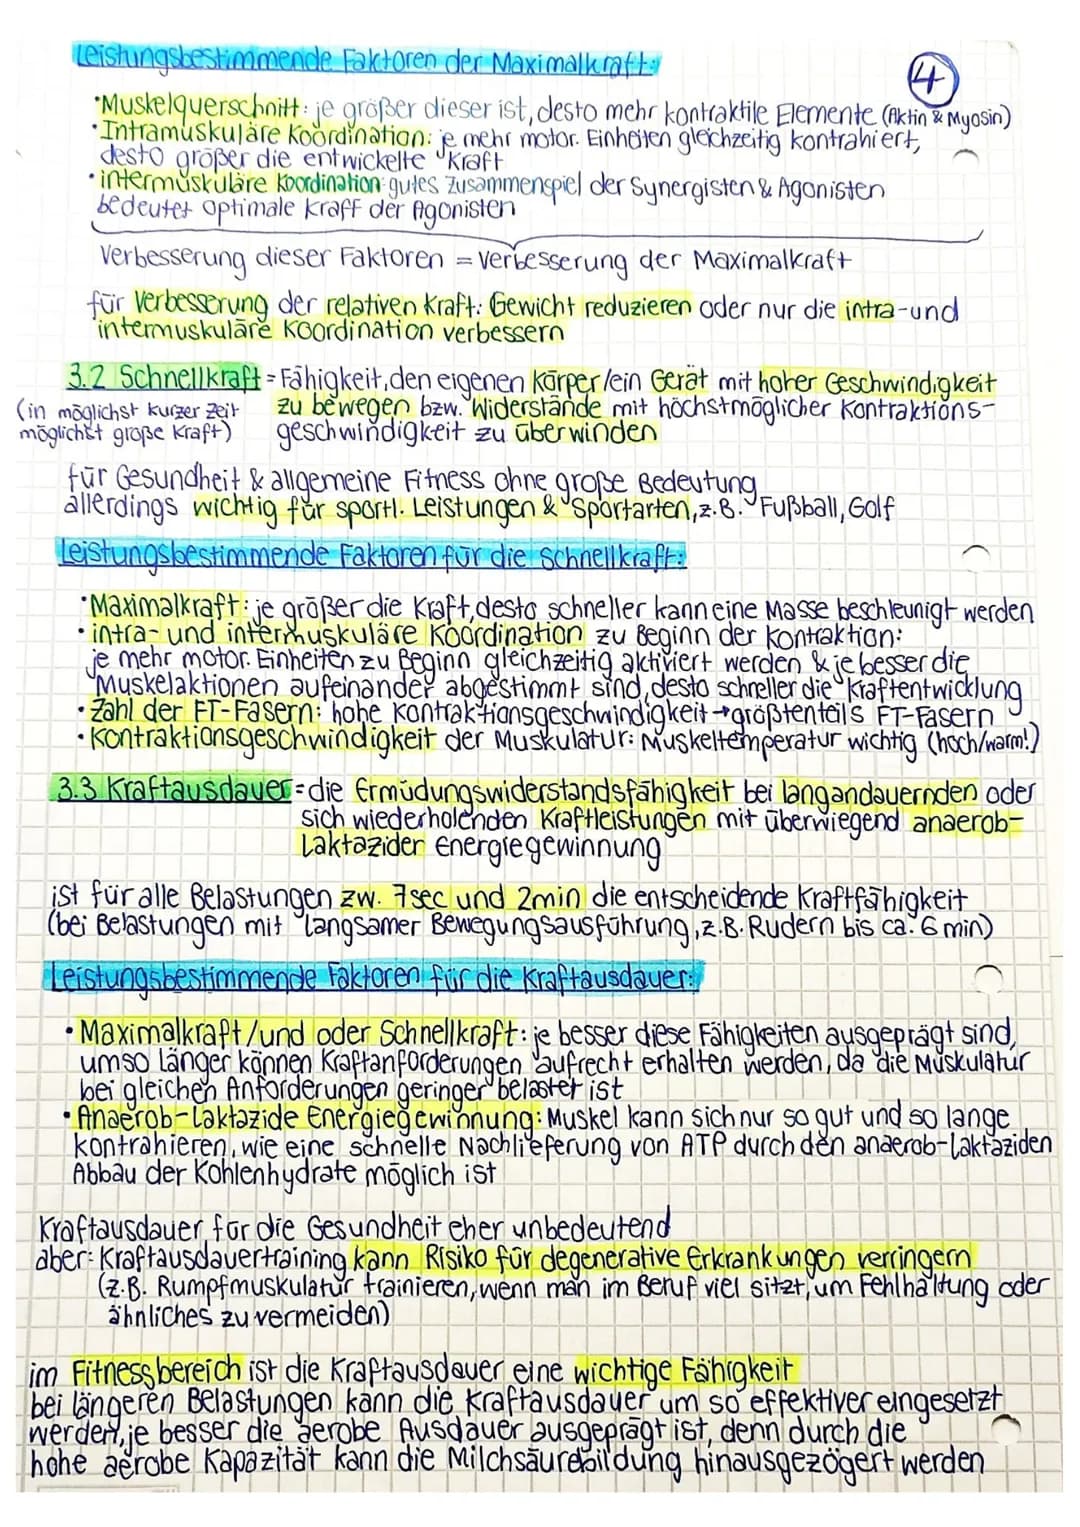 Leistungsbestimmende Faktoren der Maximalkraft:
4
•Muskelquerschnitt: je größer dieser ist, desto mehr kontraktile Elemente (Aktin & Myosin)
•Intramuskuläre Koordination: je mehr motor. Einheiten gleichzeitig kontrahiert,
desto größer die entwickelte Kraft
•intermuskuläre Koordination: gutes Zusammenspiel der Synergisten & Agonisten
bedeutet optimale Kraft der Agonisten
Verbesserung dieser Faktoren = Verbesserung der Maximalkraft
für Verbesserung der relativen Kraft: Gewicht reduzieren oder nur die intra-und
intermuskuläre Koordination verbessern
3.2 Schnellkraft = Fähigkeit, den eigenen Körper/ein Gerät mit hoher Geschwindigkeit
(in möglichst kurzer Zeit zu bewegen bzw. Widerstände mit höchstmöglicher Kontraktions-
möglichst große Kraft) geschwindigkeit zu überwinden
für Gesundheit & allgemeine Fitness ohne große Bedeutung
allerdings wichtig für sportl. Leistungen & Sportarten, z.B. Fußball, Golf
Leistungsbestimmende Faktoren für die Schnellkraft:
•Maximalkraft: je größer die Kraft, desto schneller kann eine Masse beschleunigt werden
•intra- und intermuskuläre Koordination zu Beginn der Kontraktion:
je mehr motor. Einheiten zu Beginn gleichzeitig aktiviert werden & je besser die
Muskelaktionen aufeinander abgestimmt sind, desto schneller die Kraftentwicklung
•Zahl der FT-Fasern: hohe Kontraktionsgeschwindigkeit → größtenteils FT-Fasern
•Kontraktionsgeschwindigkeit der Muskulatur: Muskeltemperatur wichtig (hoch/warm!)
3.3 Kraftausdauer = die Ermüdungswiderstandsfähigkeit bei langandauernden oder
sich wiederholenden Kraftleistungen mit überwiegend anaerob-
Laktazider Energiegewinnung
ist für alle Belastungen zw. 7sec und 2min die entscheidende Kraftfähigkeit
(bei Belastungen mit langsamer Bewegungsausführung, z.B. Rudern bis ca. 6 min)
Leistungsbestimmende Faktoren für die Kraftausdauer:
•Maximalkraft/und oder Schnellkraft: je besser diese Fähigkeiten ausgeprägt sind,
umso länger können Kraftanforderungen aufrecht erhalten werden, da die Muskulatur
bei gleichen Anforderungen geringer belastet ist
•Anaerob-Laktazide Energiegewinnung: Muskel kann sich nur so gut und so lange
kontrahieren, wie eine schnelle Nachlieferung von ATP durch den anaerob-Laktaziden
Abbau der Kohlenhydrate möglich ist
Kraftausdauer für die Gesundheit eher unbedeutend
aber: Kraftausdauertraining kann Risiko für degenerative Erkrankungen verringern
(z.B. Rumpfmuskulatur trainieren, wenn man im Beruf viel sitzt, um Fehlhaltung oder
ähnliches zu vermeiden)
im Fitnessbereich ist die Kraftausdauer eine wichtige Fähigkeit
bei längeren Belastungen kann die Kraftausdauer um so effektiver eingesetzt
werden, je besser die aerobe Ausdauer ausgeprägt ist, denn durch die
hohe aerobe Kapazität kann die Milchsäurebildung hinausgezögert werden